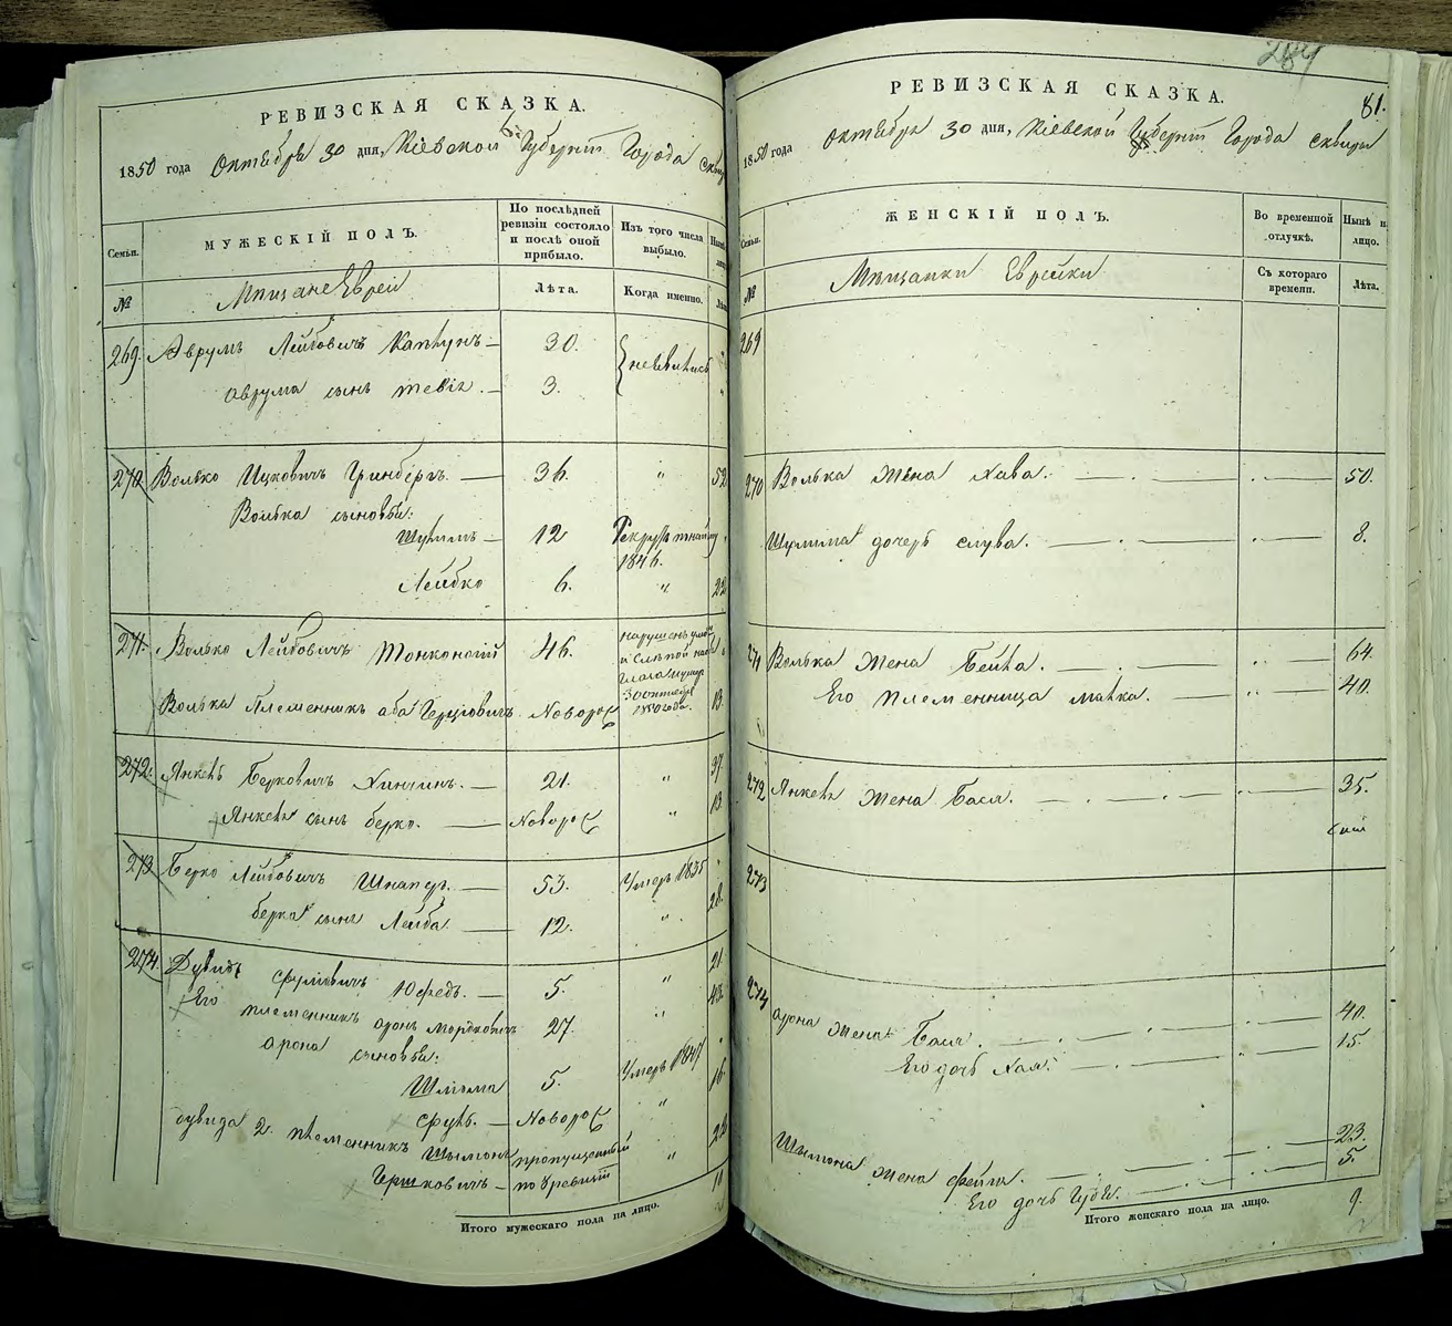 РЕВИЗСКАЯ СКАЗКА.
1850 года Октября 30 дня, Кіевской Губерніи Города
Семьи. МУЖЕСКІЙ ПОЛЪ. По послѣдней ревизіи состояло и послѣ оной прибыло. Изъ того числа выбыло.
№ Мѣщане Евреи Лѣта. Когда именно.
269. Аврумъ Лейбовичъ 30.
Аврума сынъ Тевія. 3.
270 Волько Ицковичъ Гринбергъ. 36. " 52
Волька сыновья:
Шулимъ 12
1846.
Лейбко 6. " 22
271. Волько Лейбовичъ Тонконогій 46.
30 октября
1850 года.
Волька Племенникъ Аба ГерцковичъНоворо 13.
272. Янкель Берковичъ Хинчинъ. 21. " 37.
Янкеля сынъ Берко. Новорож " 13.
273 Берко Лейбовичъ Шнапер. 53. Умеръ 1835
Берка сынъ Лейба. 12. " 28.
274. Дувидъ Сруліовичъ Юфедъ. 5. " 21.
Его племенникъ Аронъ Мордковичъ 27. " 43.
Арона сыновья:
Шліома 5. Умеръ 1847
Сруль. Новорож " 16.
Дувида 2. племенникъ Шымонъ пропущенный
Гершковичъ по 8 ревизіи "
Итого мужескаго пола на лицо. 10
284
РЕВИЗСКАЯ СКАЗКА. 81.
1850 года Октября 30 дня, Кіевской Губерніи Города Сквиры
Семьи. ЖЕНСКІЙ ПОЛЪ. Во временной отлучкѣ. Нынѣ на лицо.
№ Мѣщанки Еврейки Съ котораго времени. Лѣта.
269
270 Волька Жена Хава. 50.
Шулима дочерь Слува. 8.
271 Волька Жена Бейла. 64.
Его племенница Малка. 40.
272 Янкеля Жена Бася. 35.
273
274 Арона Жена Бася. 40.
Его дочь Хая. 15.
Шымона Жена Фейга. 23.
Его дочь 5.
Итого женскаго пола на лицо. 9.